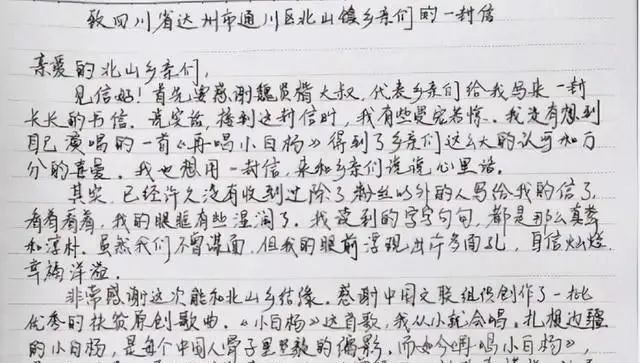 致四川省达州市通川区北山镇乡亲们的一封信
亲爱的北山乡亲们，
见信好！首先要感谢魏贤楷大叔，代表乡亲们给我写来一封
长长的书信。说实话，接到这封信时，我有些受宠若惊。我没有想到
自己演唱的一首《再唱小白杨》得到了乡亲们这么大的认可和万
分的喜爱。我也想用一封信，来和乡亲们说说心里话。
其实，已经许久没有收到过除了粉丝以外的人写给我的信了，
看着看着，我的眼眶有些湿润了。我读到的字字句句，都是那么真挚
和淳朴。虽然我们不曾谋面，但我的眼前浮现出许多面孔，自信灿烂，
幸福洋溢。
非常感谢这次能和北山乡结缘。感谢中国文联组织创作了一批
优秀的扶贫原创歌曲。《小白杨》这首歌，我从小就会唱。扎根边疆
的小白杨，是每个中国人骨子里坚毅的偶影。而如今《再唱小白杨》，